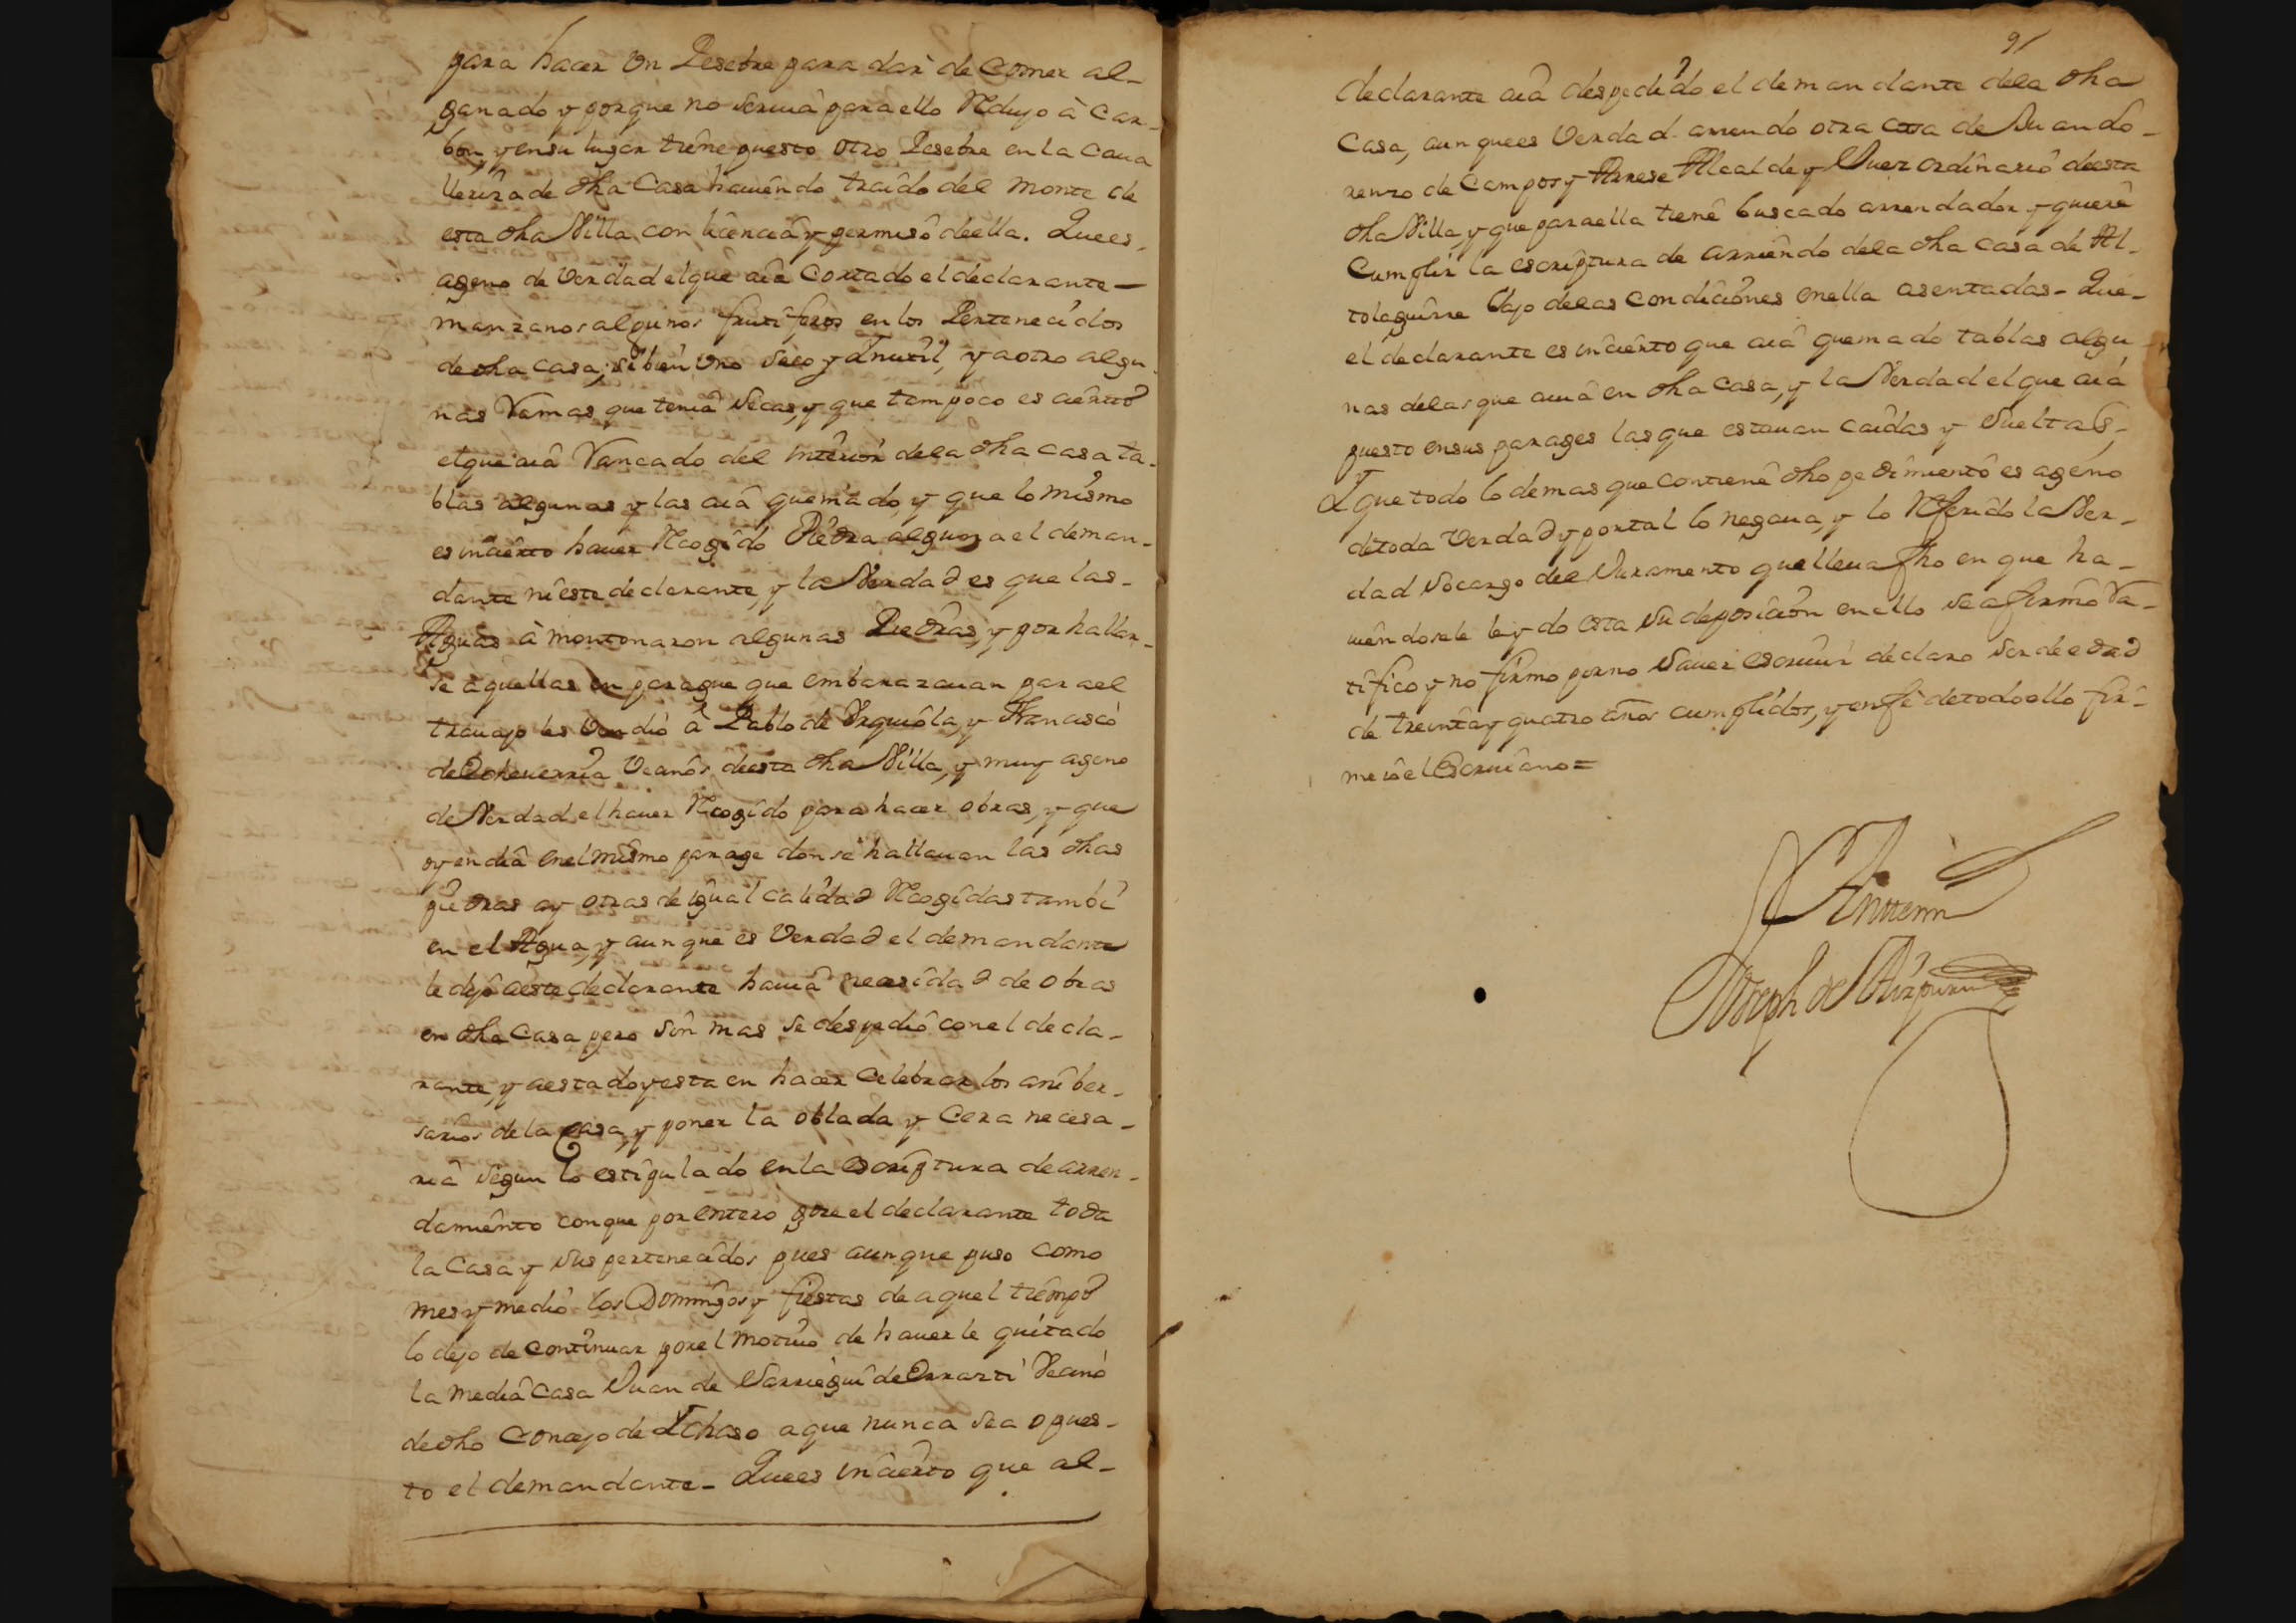 para hacer un Pesebre para dar de Comer al-
ganado y porque no seruia para ello Redujo à Car-
bon, y en su lugar tiene puesto otro Pesebre en la Caua
lleriza de dha Casa hauiendo traido del monte de
esta dha Villa con licencia y permiso de ella. Que es
ageno de Verdad el que aia Cortado el declarante—
manzanos algunos frutiferos en los Pertenecidos
de dha casa, si bien uno seco y Inutil, y a otro algu-
nas Ramas que tenia secas, y que tampoco es cierto
el que aia Rancado del interior de la dha casa ta-
blas algunas y las aia quemado, y que lo mismo
es incierto hauer Recogido Piedra alguna el deman-
dante ni este declarante, y la Verdad es que las-
Aguas à montonaron algunas Piedras, y por hallar-
se aquellas en parage que embarazauan para el
trauajo les Vendió â Pablo de Vrquiola, y Francisco
de Echeuerria Vecinos de esta dha Villa, y muy ageno
de Verdad el hauer Recogido para hacer obras, y que
oy en dia en el mismo parage donse hallauan las dhas
piedras ay otras de igual calidad Recogidas tambi
en el Agua, y aunque es Verdad el demandante
le dijo a este declarante hauia necesidad de obras
en dha Casa pero sin mas se despedió con el decla-
rante, y a estado y esta en hacer Celebrar los aniber-
sarios de la Casa, y poner la oblada y Cera necesa-
ria segun lo estipulado en la Escriptura de arren-
damiento conque por entero goze el declarante toda
la Casa y sus pertenecidos pues aunque puso como
mes y medio los Domingos y fiestas de aquel tiempo
lo dejo de continuar por el motiuo de hauerle quitado
la media Casa Juan de Sarriegui de Orrarti Vecino
de dho Concejo de Ichaso a que nunca se a opues-
to el demandante- Que es incierto que al-
91
declarante aia despedido el demandante de la dha
Casa, aunque es Verdad arrendo otra casa de Juan do-
renzo de Campos y Arrese Alcalde y Juez ordinario de esta
dha Villa, y que para ella tiene buscado arrendador y quiere
Cumplir la escriptura de arriendo de la dha casa de Al-
tolaguirre bajo de las condiciones en ella asentadas- Que-
el declarante es incierto que aia quemado tablas algu-
nas de las que auia en dha Casa, y la Verdad el que aia
puesto en sus parages las que estauan caidas y sueltas,
Y que todo lo demas que contiene dho pedimiento es ageno
de toda Verdad y por tal lo negaua, y lo Referido la Ver-
dad so cargo del Juramento que lleua fho en que ha-
uiendosele leydo esta su deposicion en ello se afirmo Ra-
tifico y no firmo por no sauer escriuir declaro ser de edad
de treinta y quatro años cumplidos, y en fe de todo ello fir-
me io el Escriuano=
Antemi
Joseph de Aizpuru